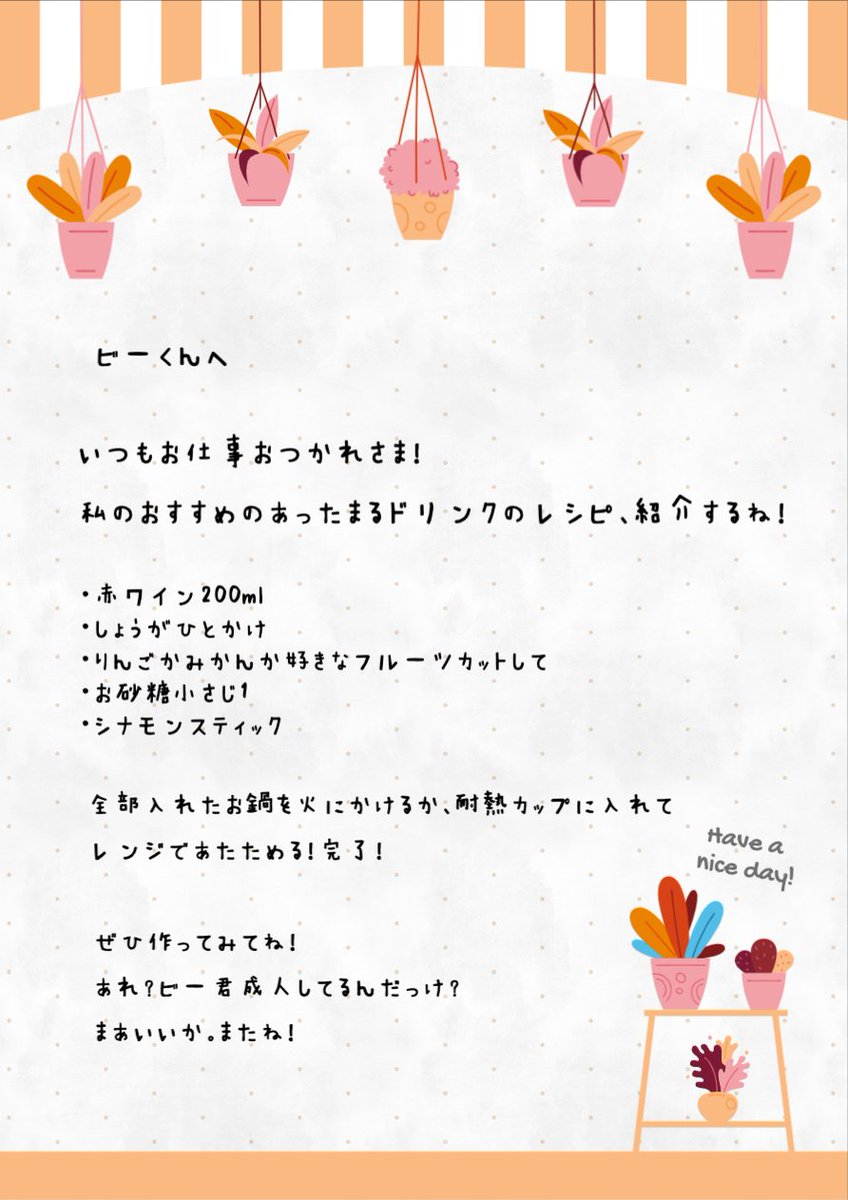 ビーくんへ
いつもお仕事おつかれさま!
私のおすすめのあったまるドリンクのレシピ、紹介するね!
・赤ワイン200ml
・しょうがひとかけ
・りんごかみかんか好きなフルーツカットして
・お砂糖小さじ1
・シナモンスティック
全部入れたお鍋を火にかけるか、耐熱カップに入れて
レンジであたためる!完了!
Have a
nice day!
ぜひ作ってみてね!
あれ?ビー君成人してるんだっけ?
まあいいか。またね!